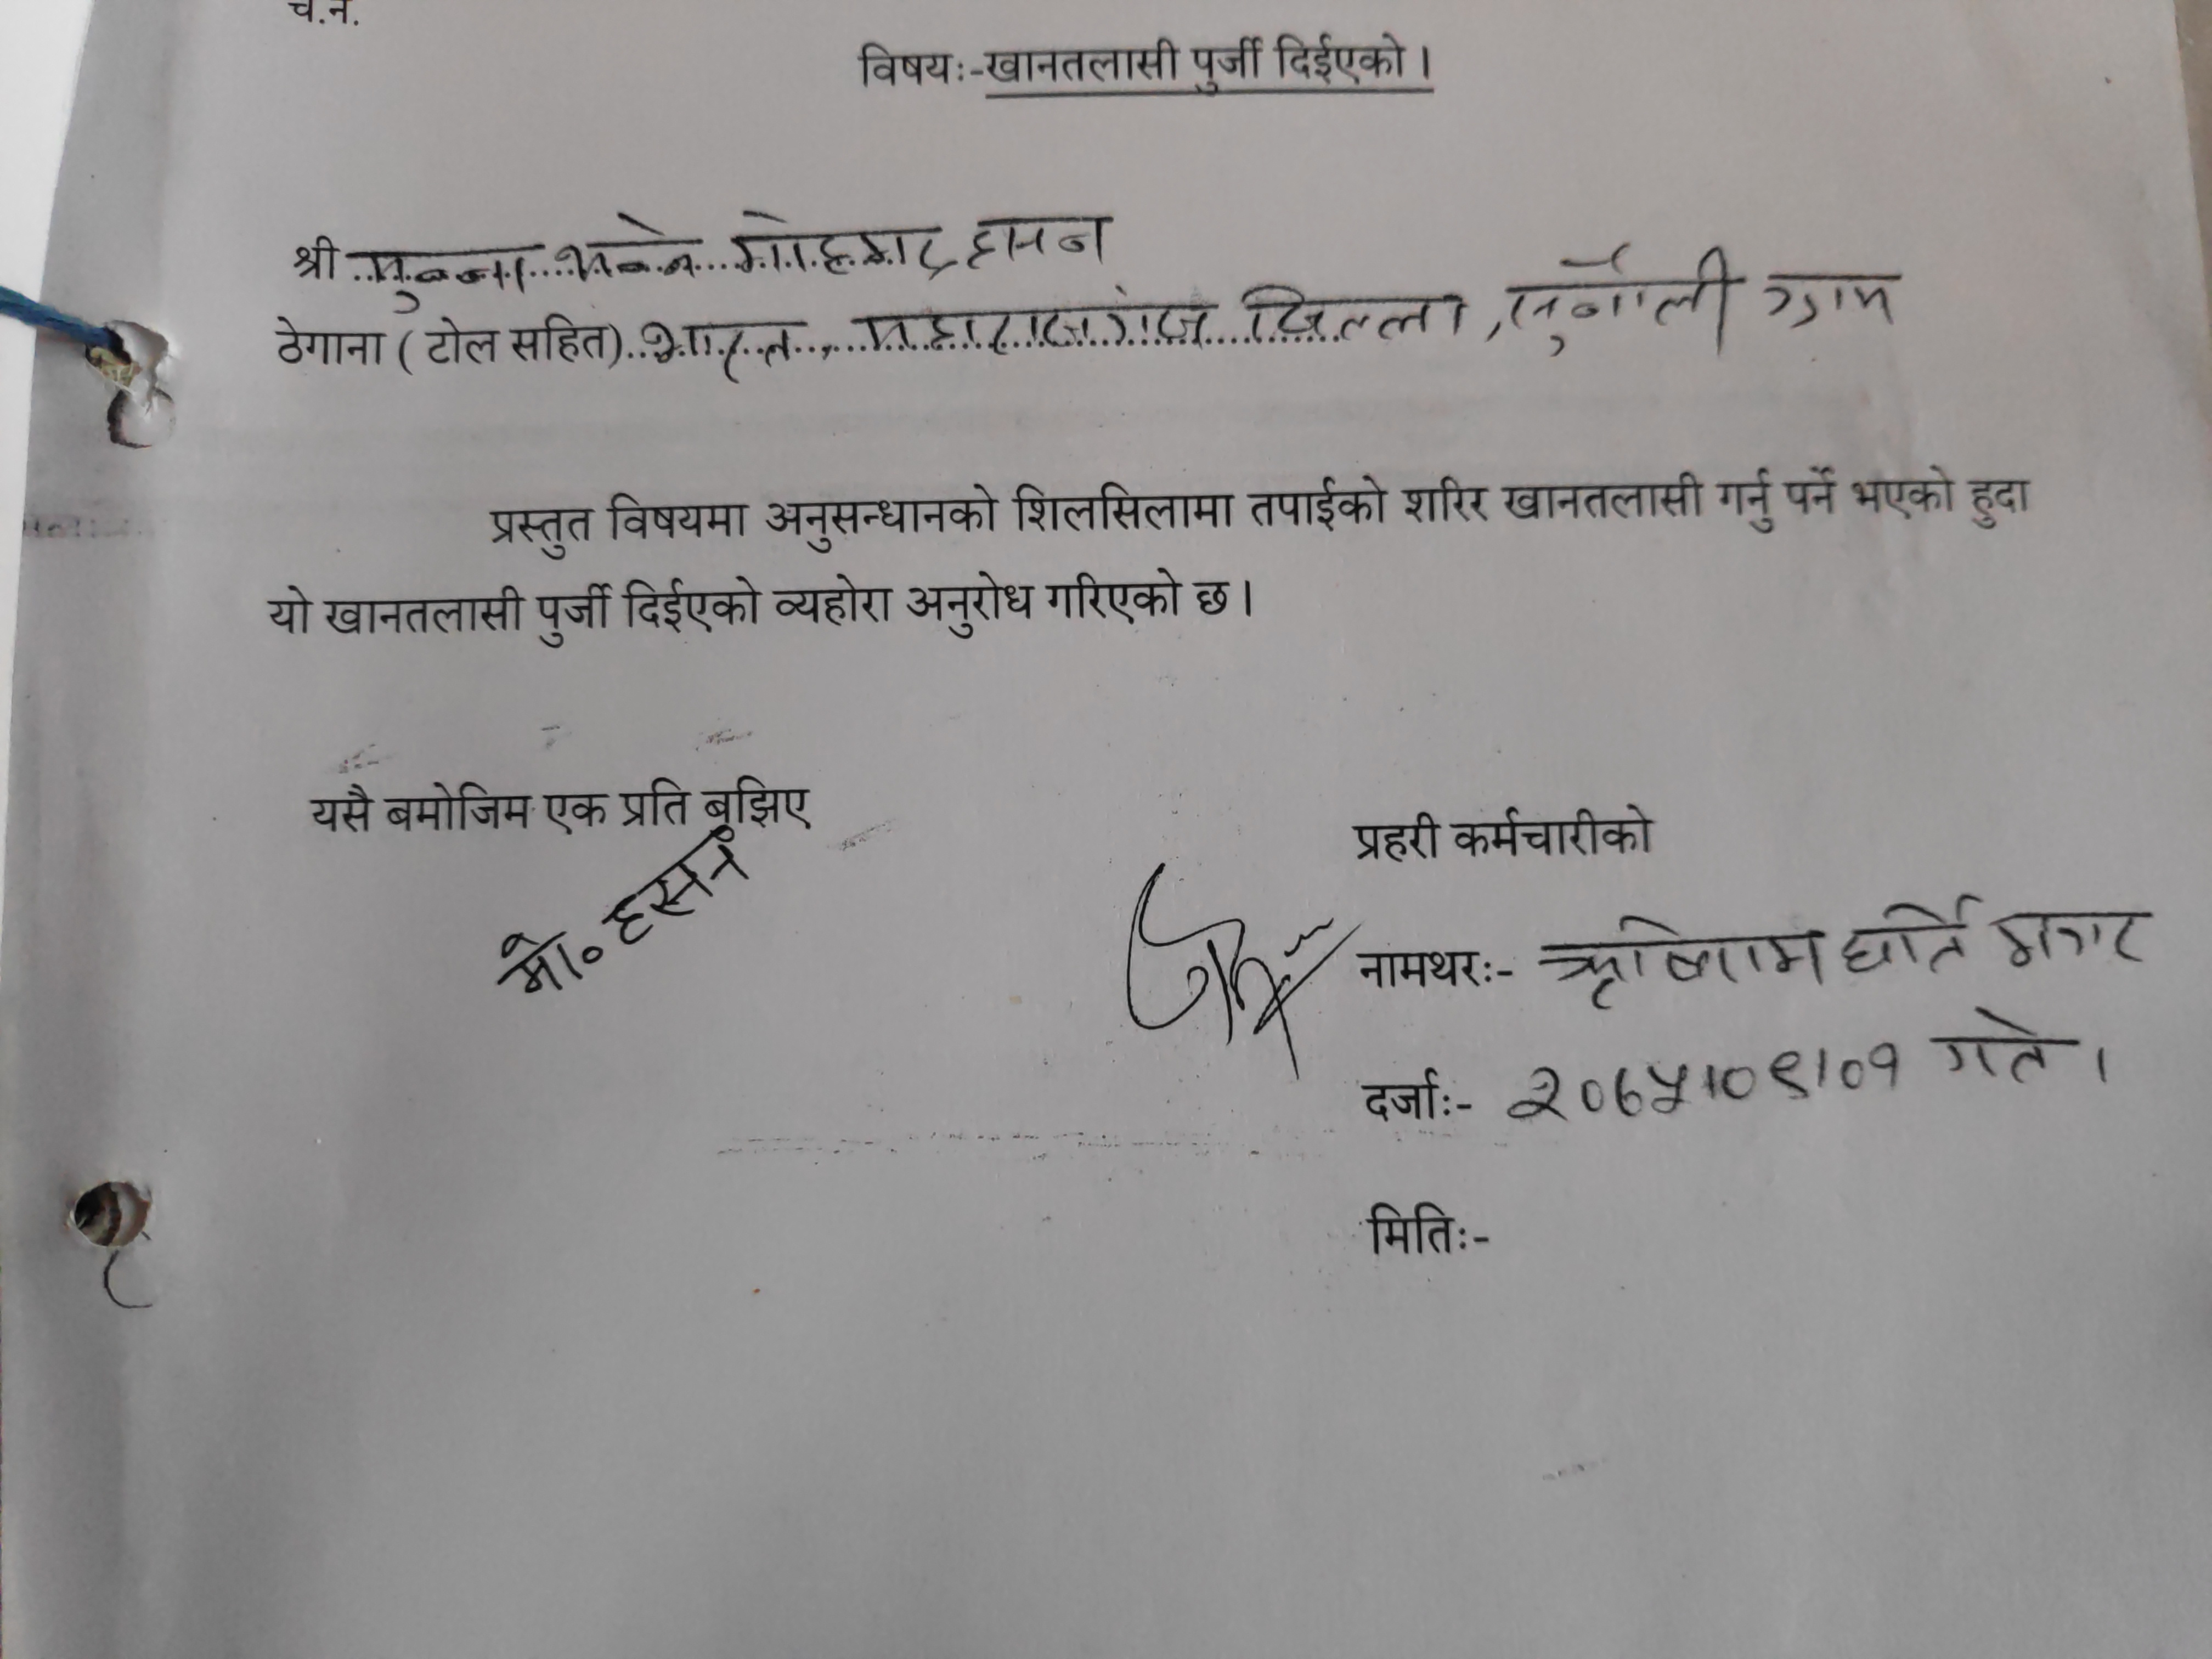 च.न.
विषयः-खानतलासी पुर्जी दिईएको ।
श्री मुन्ना भन्ने मोहमद हसन
ठेगाना ( टोल सहित) भारत, महाराजगंज जिल्ला, सुनौली ग्राम
प्रस्तुत विषयमा अनुसन्धानको शिलसिलामा तपाईको शरिर खानतलासी गर्नु पर्ने भएको हुदा
यो खानतलासी पुर्जी दिईएको व्यहोरा अनुरोध गरिएको छ ।
यसै बमोजिम एक प्रति बुझिए
मो॰ हसन
प्रहरी कर्मचारीको
नामथरः- ऋषिराम घर्ति मगर
दर्जाः- २०७५।०९।०१ गते ।
मितिः-